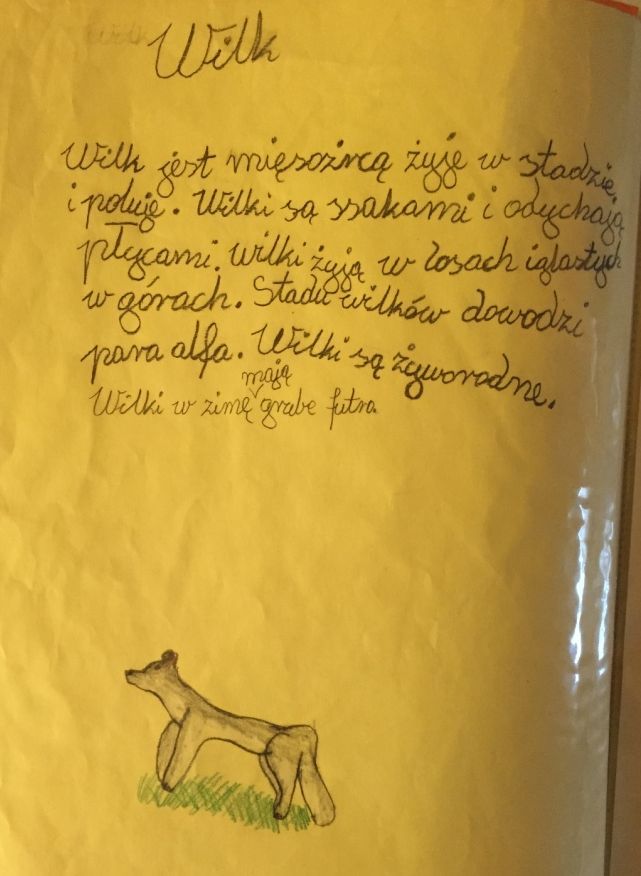 Wilk
Wilk jest mięsożercą żyję w stadzie,
i poluję. Wilki są ssakami i odychają
płycami. Wilki żyją w losach iglastych
w górach. Stadu wilków dowodzi
para alfa. Wilki są żyworodne.
mają
Wilki w zimę grube futra.